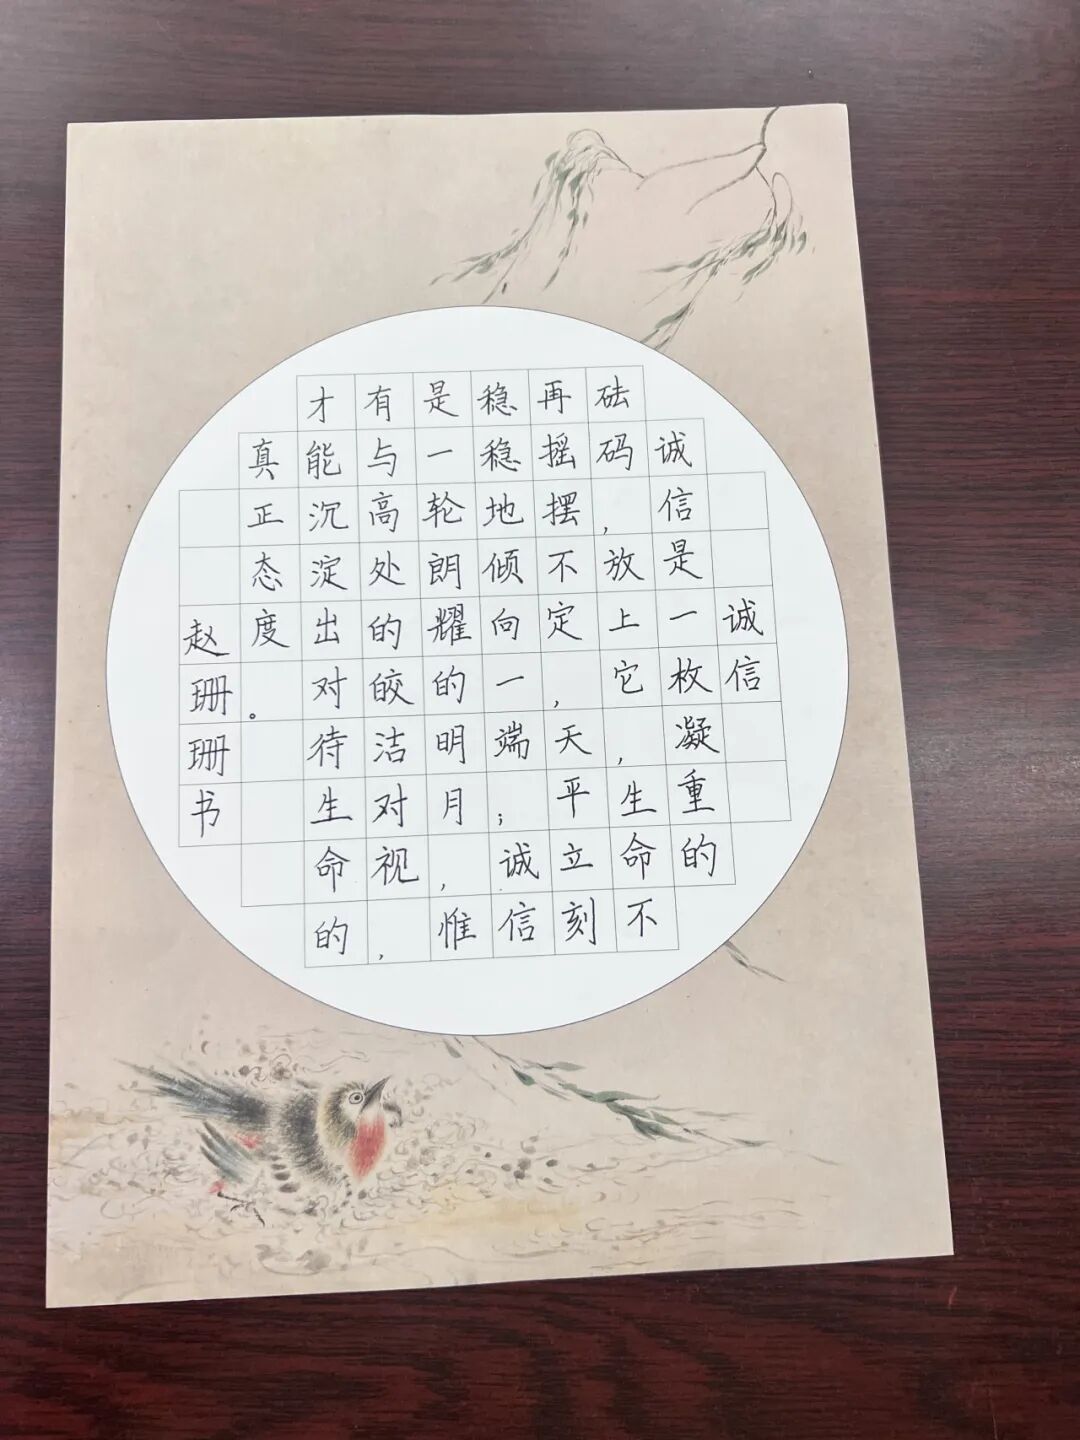 诚信
诚信是一枚凝重的
砝码，放上它，生命不
再摇摆不定，天平立刻
稳稳地倾向一端；诚信
是一轮朗耀的明月，惟
有与高处的皎洁对视，
才能沉淀出对待生命的
真正态度。
赵珊珊书